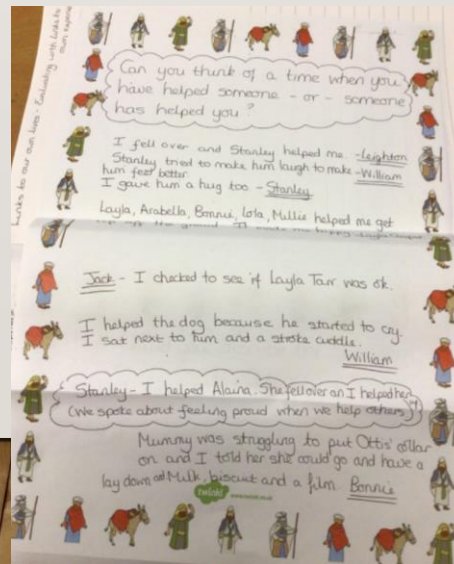 Links to our own lives - Evaluating with links to
own
Can you think of a time when you
have helped someone - or - someone
has helped you?
I fell over and Stanley helped me. - Leighton
Stanley tried to make him laugh to make - William
him feel better.
I gave him a hug too - Stanley
Layla, Arabella, Bonnie, Lola, Millie helped me get
Jack - I checked to see if Layla Tarr was ok.
I helped the dog because he started to cry.
I sat next to him and a stroke cuddle.
William
Stanley - I helped Alaina. She fell over an I helped her
(We spoke about feeling proud when we help others)
Mummy was struggling to put Otis' collar
on and I told her she could go and have a
lay down and Milk, biscuit and a film. Bonnie
twinkl www.twinkl.co.uk